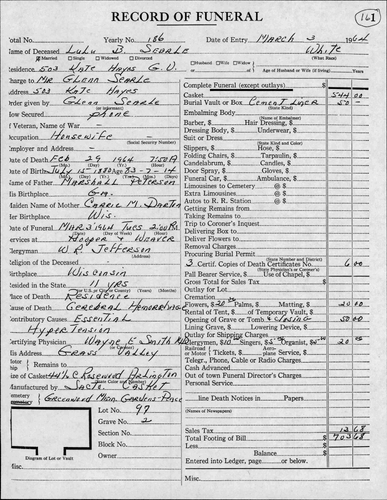 RECORD OF FUNERAL
161
Total No. Yearly No. 186 Date of Entry MARCH 3 1964
Name of Deceased LULU B. SEARLE White
Married Single Widowed Divorced Husband Wife Widow (What Race)
Residence 503 KATE HAYES G.V. of Age of Husband or Wife (if living) Years
Charge to MR GLENN SEARLE Complete Funeral (except outlays) $
Address 503 KATE HAYES Casket 544 00
Order given by GLENN SEARLE Burial Vault or Box CEMENT LINER 50 -
How Secured phone Embalming Body
If Veteran, Name of War (Name of Embalmer)
Occupation HOUSEWIFE Barber, $ Hair Dressing, $
(Social Security Number) Dressing Body, $ Underwear, $
Employer and Address Suit or Dress
(State Kind and Color)
Date of Death FEB 29 1964 7:50A Slippers, $ Hose, $
Date of Birth JULY 15 1880 Age 83-7-14 Folding Chairs, $ Tarpaulin, $
Name of Father MARSHALL PETERSON Candelabrum, $ Candles, $
His Birthplace GA. Door Spray, $ Gloves, $
Funeral Car, $ Ambulance, $
Maiden Name of Mother CARRIE M. Limousines to Cemetery @ $
Her Birthplace WIS. Extra Limousines @ $
Autos to R. R. Station @ $
Date of Funeral MAR 3 1964 TUES 2:00 PM Getting Remains
Services at HOOPER & WEAVER Taking Remains to
Clergyman W R JEFFERSON Trip to Coroner's Inquest
(Address) Delivering Box to
Religion of the Deceased Deliver Flowers to
Removal Charges
Birthplace WISCONSIN Procuring Burial Permit
Resided in the State 11 YRS 3 Certif. Copies of Death Certificates No. 6 00
Place of Death RESIDENCE Pall Bearer Service, $ Use of Chapel, $
Cause of Death CEREBRAL HEMORRHAGE Gross Total for Sales Tax $
Contributory Causes ESSENTIAL Outlay for Lot
HYPERTENSION Cremation
Flowers, $ 20 00 Palms, $ Matting, $ 20 00
Certifying Physician WAYNE E SMITH MD Rental of Tent, $ of Temporary Vault, $
His Address GRASS VALLEY Opening of Grave or Tomb & CLOSING 50 00
Lining Grave, $ Lowering Device, $
Outlay for Shipping Charges
Clergyman, $ 10 Singers, $ 5 Organist, $ 5 20 00
Railroad or Motor Tickets, $ Aero. Service $
Remains to Telegr., Phone, Cable or Radio Charges
Size of Casket ROSEWOOD ARLINGTON Cash Advanced
Manufactured by SACTO CASKET Out of town Funeral Director's Charges
Cemetery GREENWOOD MEM GARDENS Personal Service
Lot No. 97 line Death Notices in Papers
Grave No. 2 (Names of Newspapers)
Block No. Sales Tax 13 68
Section No. Total Footing of Bill $ 703 68
Owner By Amount $
Balance $
Diagram of Lot or Vault Entered into Ledger, page or below.
Misc. Misc.